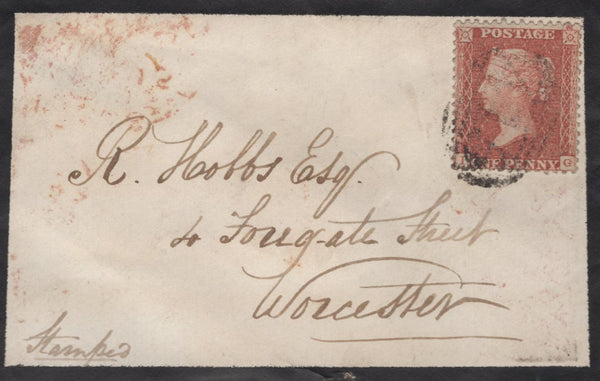 POSTAGE
NE PENNY
G
R. Hobbs Esq.
4 Foregate Street
Worcester
Stamped